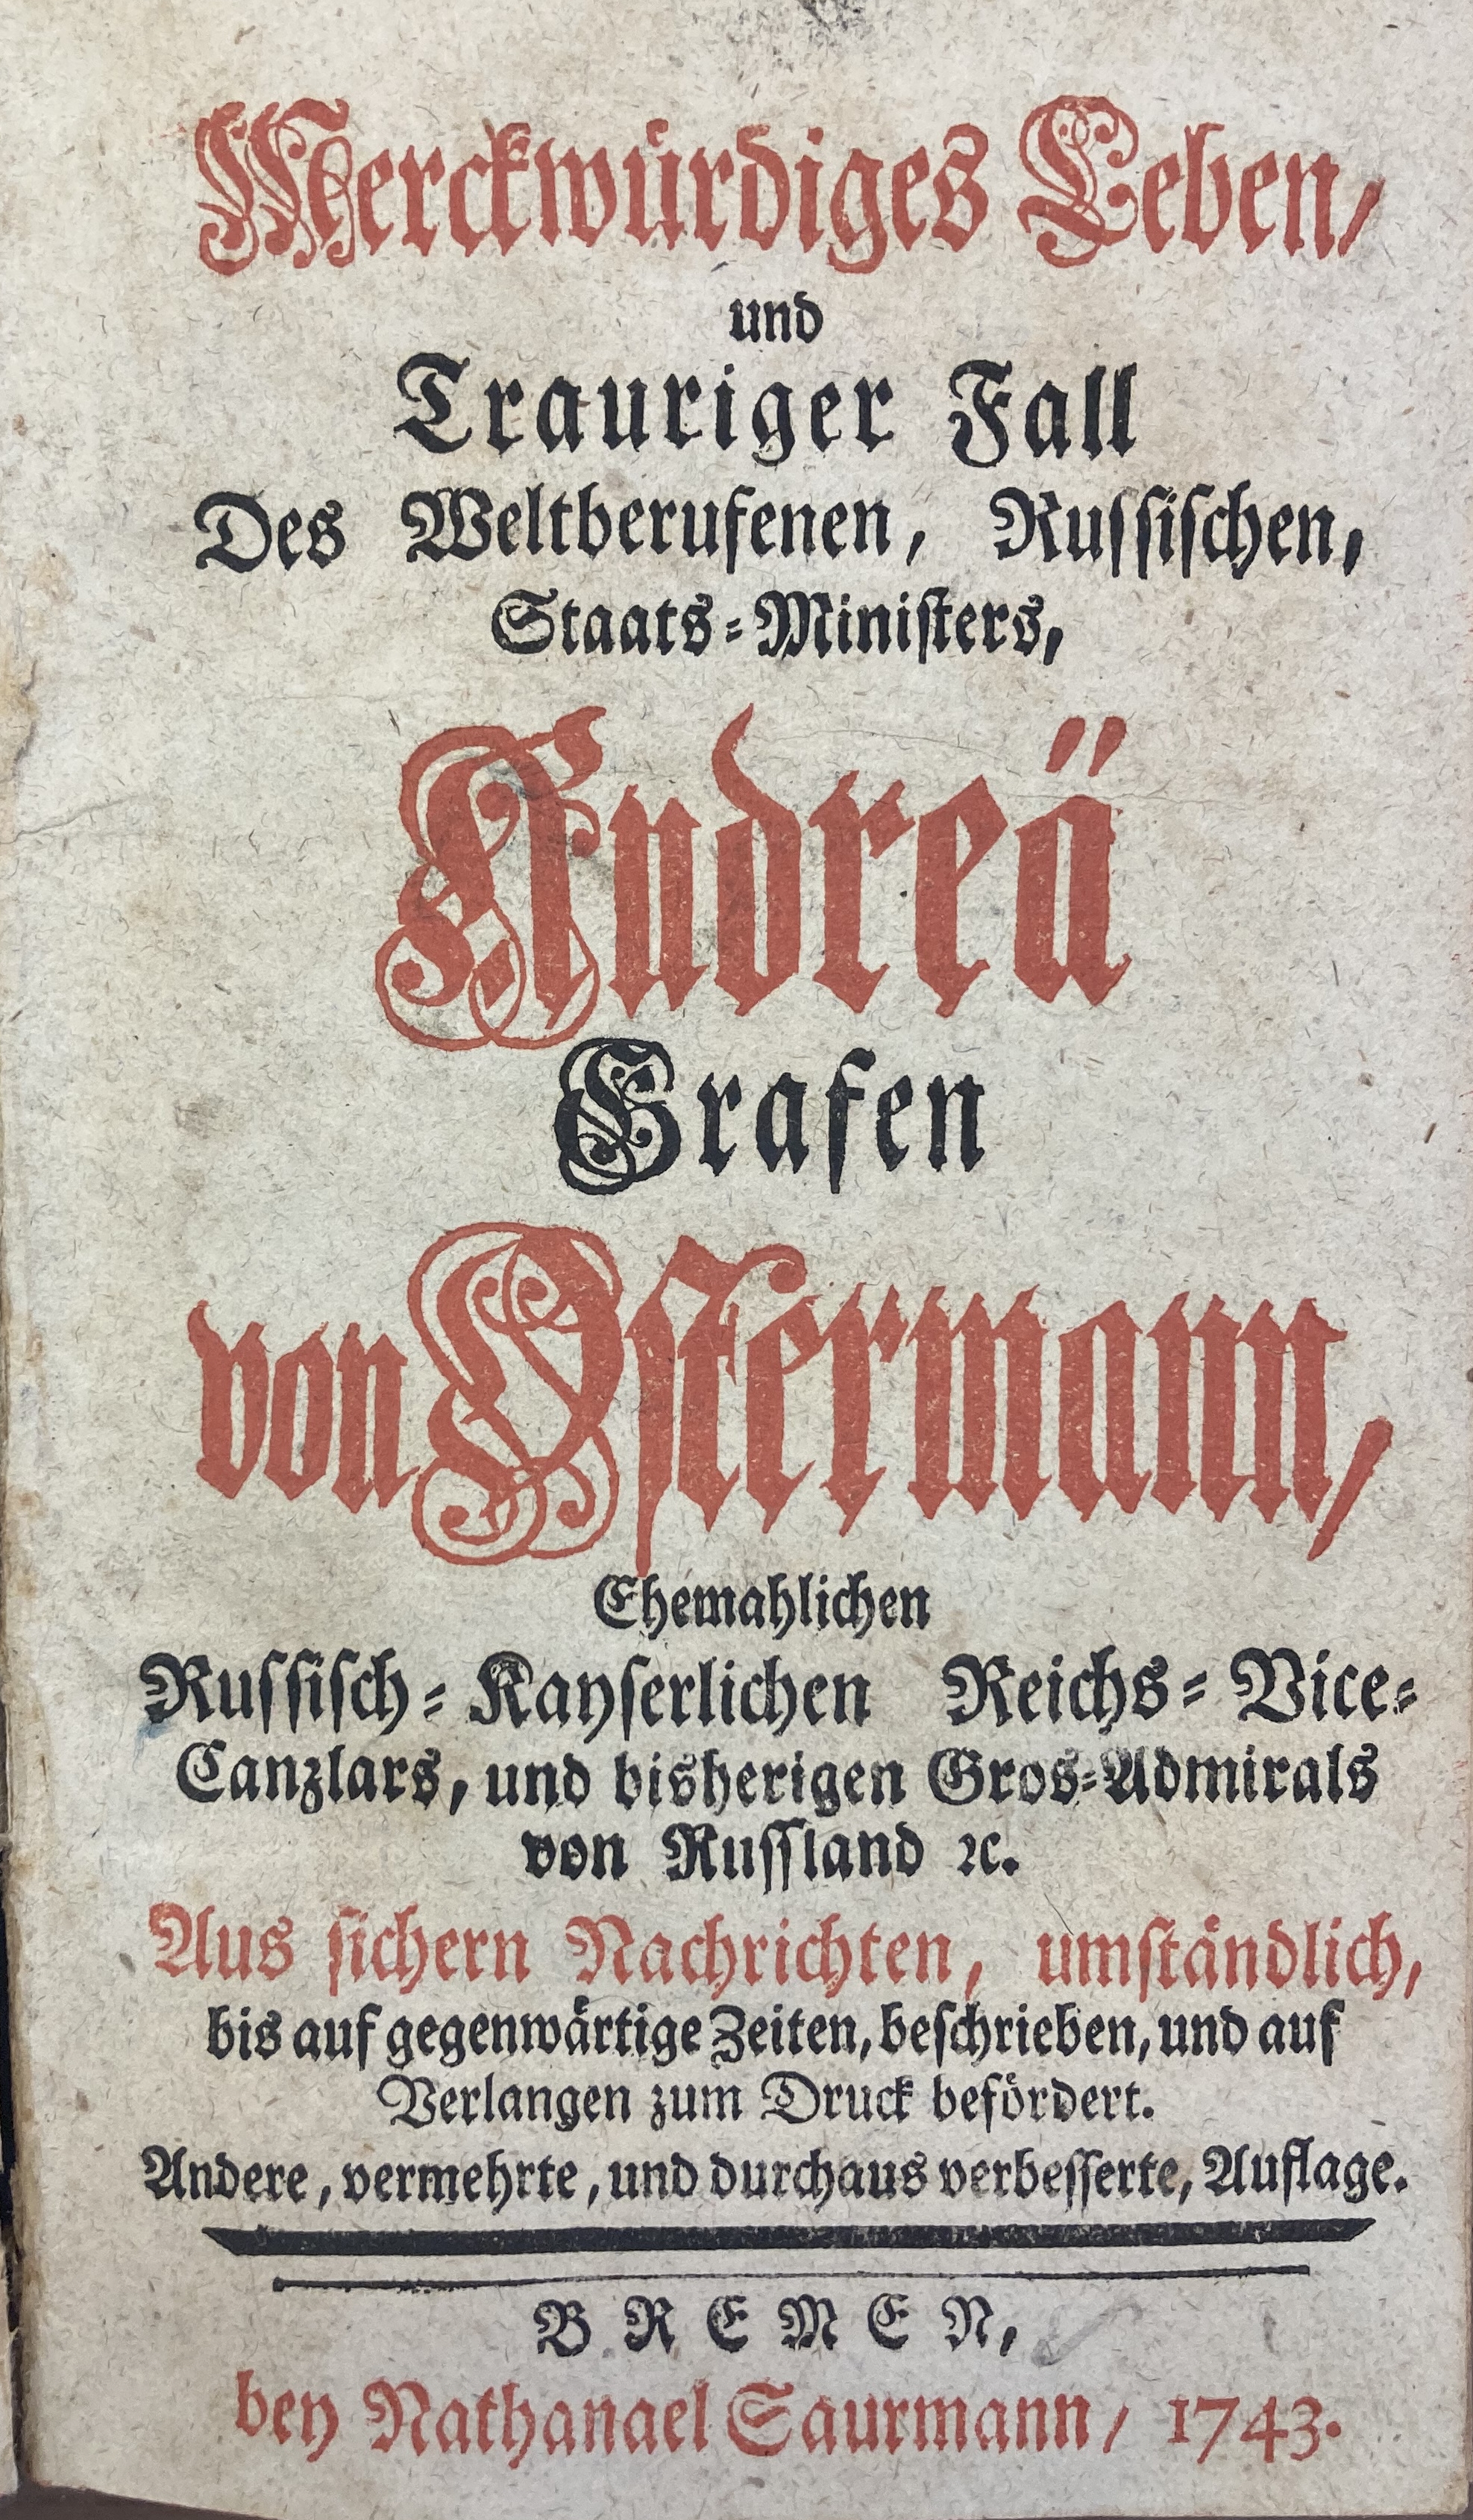 Merckwürdiges Leben/
und
Trauriger Fall
Des Weltberufenen, Russiſchen,
Staats-Miniſters,
Andreä
Grafen
von Oſtermann,
Ehemahlichen
Russiſch-Kayſerlichen Reichs-Vice-
Canzlars, und bisherigen Gros-Admirals
von Ruſſland ꝛc.
Aus ſichern Nachrichten, umſtändlich,
bis auf gegenwärtige Zeiten, beſchrieben, und auf
Verlangen zum Druck befördert.
Andere, vermehrte, und durchaus verbeſſerte, Auflage.
BREMEN,
bey Nathanael Saurmann/ 1743.